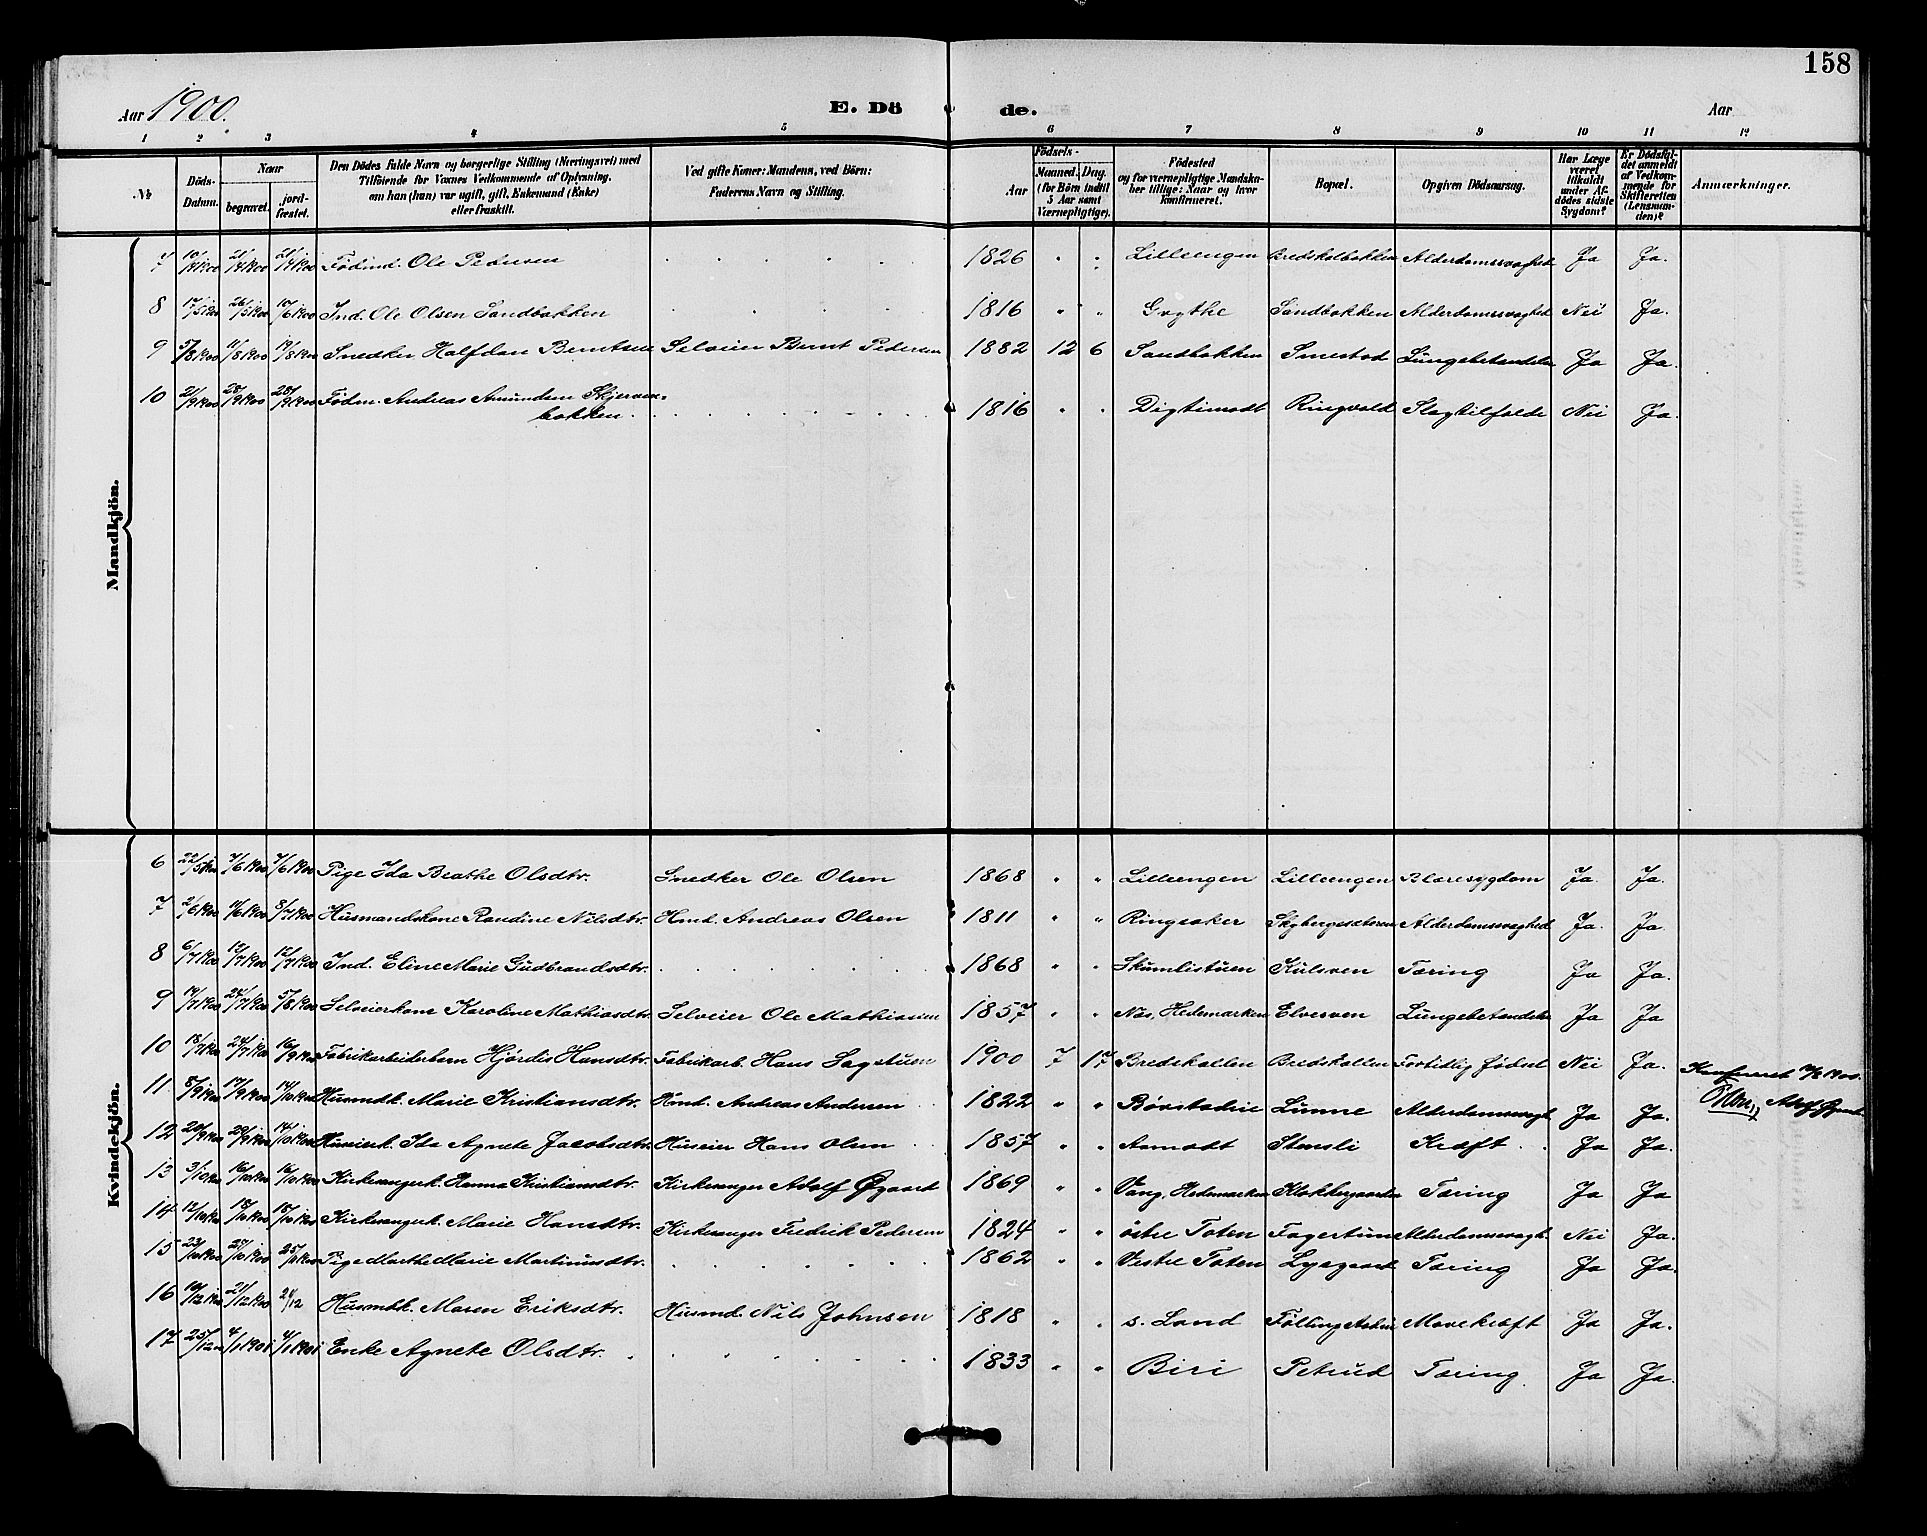 158
Aar 1900. E. Dö de. Aar
1 2 3 4 5 6 7 8 9 10 11 12
№ Döds-Datum. Naar begravet. jordfæstet. Den Dödes fulde Navn og borgerlige Stilling (Næringsvei) med Tilföiende for Voxnes Vedkommende af Oplysning, om han (hun) var ugift, gift, Enkemand (Enke) eller fraskilt. Ved gifte Koner: Mandens, ved Börn: Faderens Navn og Stilling. Födsels- Aar Maaned. Dag. (for Börn indtil 5 Aar samt Værnepligtige). Födested og for værnepligtige Mandskaber tillige: Naar og hvor konfirmeret. Bopæl. Opgiven Dödsaarsag. Har Læge været tilkaldt under Afdödes sidste Sygdom? Er Dödsfaldet anmeldt af Vedkommende for Skifteretten (Lensmanden)? Anmærkninger.
Mandkjön.
7 10/4 1900 21/4 1900 21/4 1900 Födind. Ole Pedersen 1826 " " Lilleengen Bredskelbakken Alderdomssvaghed Ja Ja.
8 17/5 1900 26/5 1900 10/6 1900 Ind. Ole Olsen Sandbakken 1816 " " Grythe Sandbakken Alderdomssvaghed Nei Ja.
9 5/8 1900 11/8 1900 19/8 1900 Snedker Halfdan Berntsen Selveier Bernt Pedersen 1882 12 6 Sandbakken Smestad Lungebetændelse Ja Ja.
10 21/9 1900 28/9 1900 28/9 1900 Födm. Andreas Amundsen Skjerven-
bakken. 1816 " " Digtimodt Ringvold Slagtilfælde Nei Ja.
Kvindekjön.
6 22/5 1900 7/6 1900 7/6 1900 Pige Ida Beathe Olsdtr. Snedker Ole Olsen 1868 " " Lilleengen Lilleengen Blæresygdom Ja. Ja.
7 2/6 1900 11/6 1900 8/7 1900 Husmandskone Randine Nilsdtr. Hmd. Andreas Olsen 1811 " Ringsaker Skybergssæteren Alderdomssvaghed Ja. Ja.
8 6/7 1900 12/7 1900 12/7 1900 Ind. Eline Marie Gudbrandsdtr. 1868 " " Skumlistuen Kulsven Tæring Ja Ja.
9 14/7 1900 24/7 1900 5/8 1900 Selveierkone Karoline Mathiasdtr. Selveier Ole Mathiasen 1857 " " Næs, Hedemarken Elvesven Lungebetændelse Ja Ja
10 18/7 1900 24/7 1900 16/9 1900 Fabrikarbeiderbarn Hjördis Hansdtr. Fabrikarb. Hans Sagstuen 1900 7 17 Bredskallen Bredskallen Fortidlig födsel Nei Ja.
11 8/9 1900 17/9 1900 14/10 1900 Husmdk. Marie Kristiansdtr. Hmd. Andreas Andersen 1822 " " Bövstadeie Limne Alderdomssvagh. Ja Ja.
12 20/9 1900 29/9 1900 14/10 1900 Huseierk. Ida Agnete Jacobsdtr. Huseier Hans Olsen 1857 " " Aamodt Stensli Kræft Ja Ja.
13 3/10 1900 16/10 1900 16/10 1900 Kirkesangerk. Hanna Kristiansdtr. Kirkesanger Adolf Øgaard 1869 " " Vang, Hedemarken Klokkergaarden Tæring Ja Ja
14 12/10 1900 18/10 1900 18/10 1900 Kirkesangerk. Marie Hansdtr. Kirkesanger Fredrik Pedersen 1824 " " östre Toten Fagertun Alderdomssvagh. Nei Ja.
15 23/10 1900 25/10 1900 Pige Marthe Marie Martinusdtr. 1862 " " Vestre Toten Lysgaard Tæring Ja Ja.
16 10/12 1900 21/12 1900 21/12 Husmdk. Maren Eriksdtr. Husmd. Nils Johnsen 1818 " " s. Land Mavekræft Ja Ja.
17 25/12 4/1 1901 4/1 1901 Enke Agnete Olsdtr. 1833 " " Biri Petrud Tæring. Ja Ja.